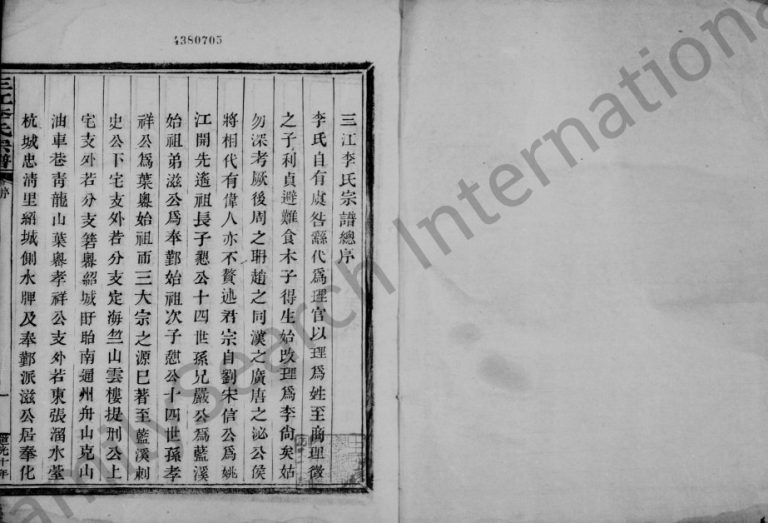 4380705
三江李氏宗譜總序
李氏自有虞咎繇代爲理官以理爲姓至商理徵
之子利貞避難食木子得生始改理爲李尙矣姑
勿深考厥後周之珊趙之同漢之廣唐之泌公侯
將相代有偉人亦不贅述君宗自劉宋信公爲姚
江開先遙祖長子懇公十四世孫兄嚴公爲藍溪
始祖弟滋公爲奉鄞始祖次子恕公十四世孫孝
祥公爲葉嶴始祖而三大宗之源巳著至藍溪刺
史公下宅支外若分支定海竺山雲樓提刑公上
宅支外若分支箬嶴紹城盱眙南通州舟山克山
油車巷靑龍山葉嶴孝祥公支外若東張溺水䓝
杭城忠淸里紹城側水牌及奉鄞派滋公居奉化
三江李氏宗譜
序
一
FamilySearch International